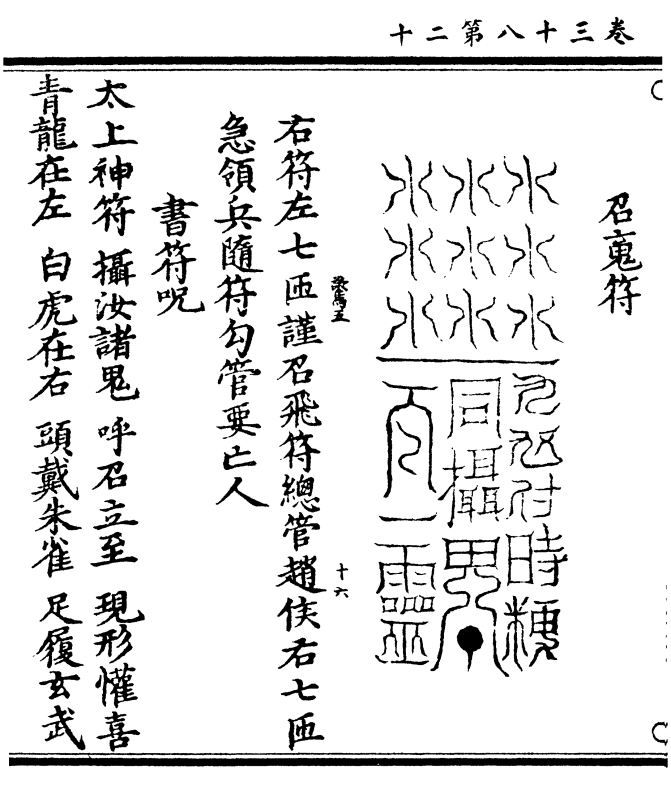 十二第八十三卷
召䰟符
水水水
水水水
水水水
時
同攝
一靈
右符左七匝謹召飛符總管趙侯右七匝
十六
急領兵隨符勾管要亡人
書符呪
太上神符 攝汝諸鬼 呼召立至 現形懽喜
青龍在左 白虎在右 頭戴朱雀 足履玄武